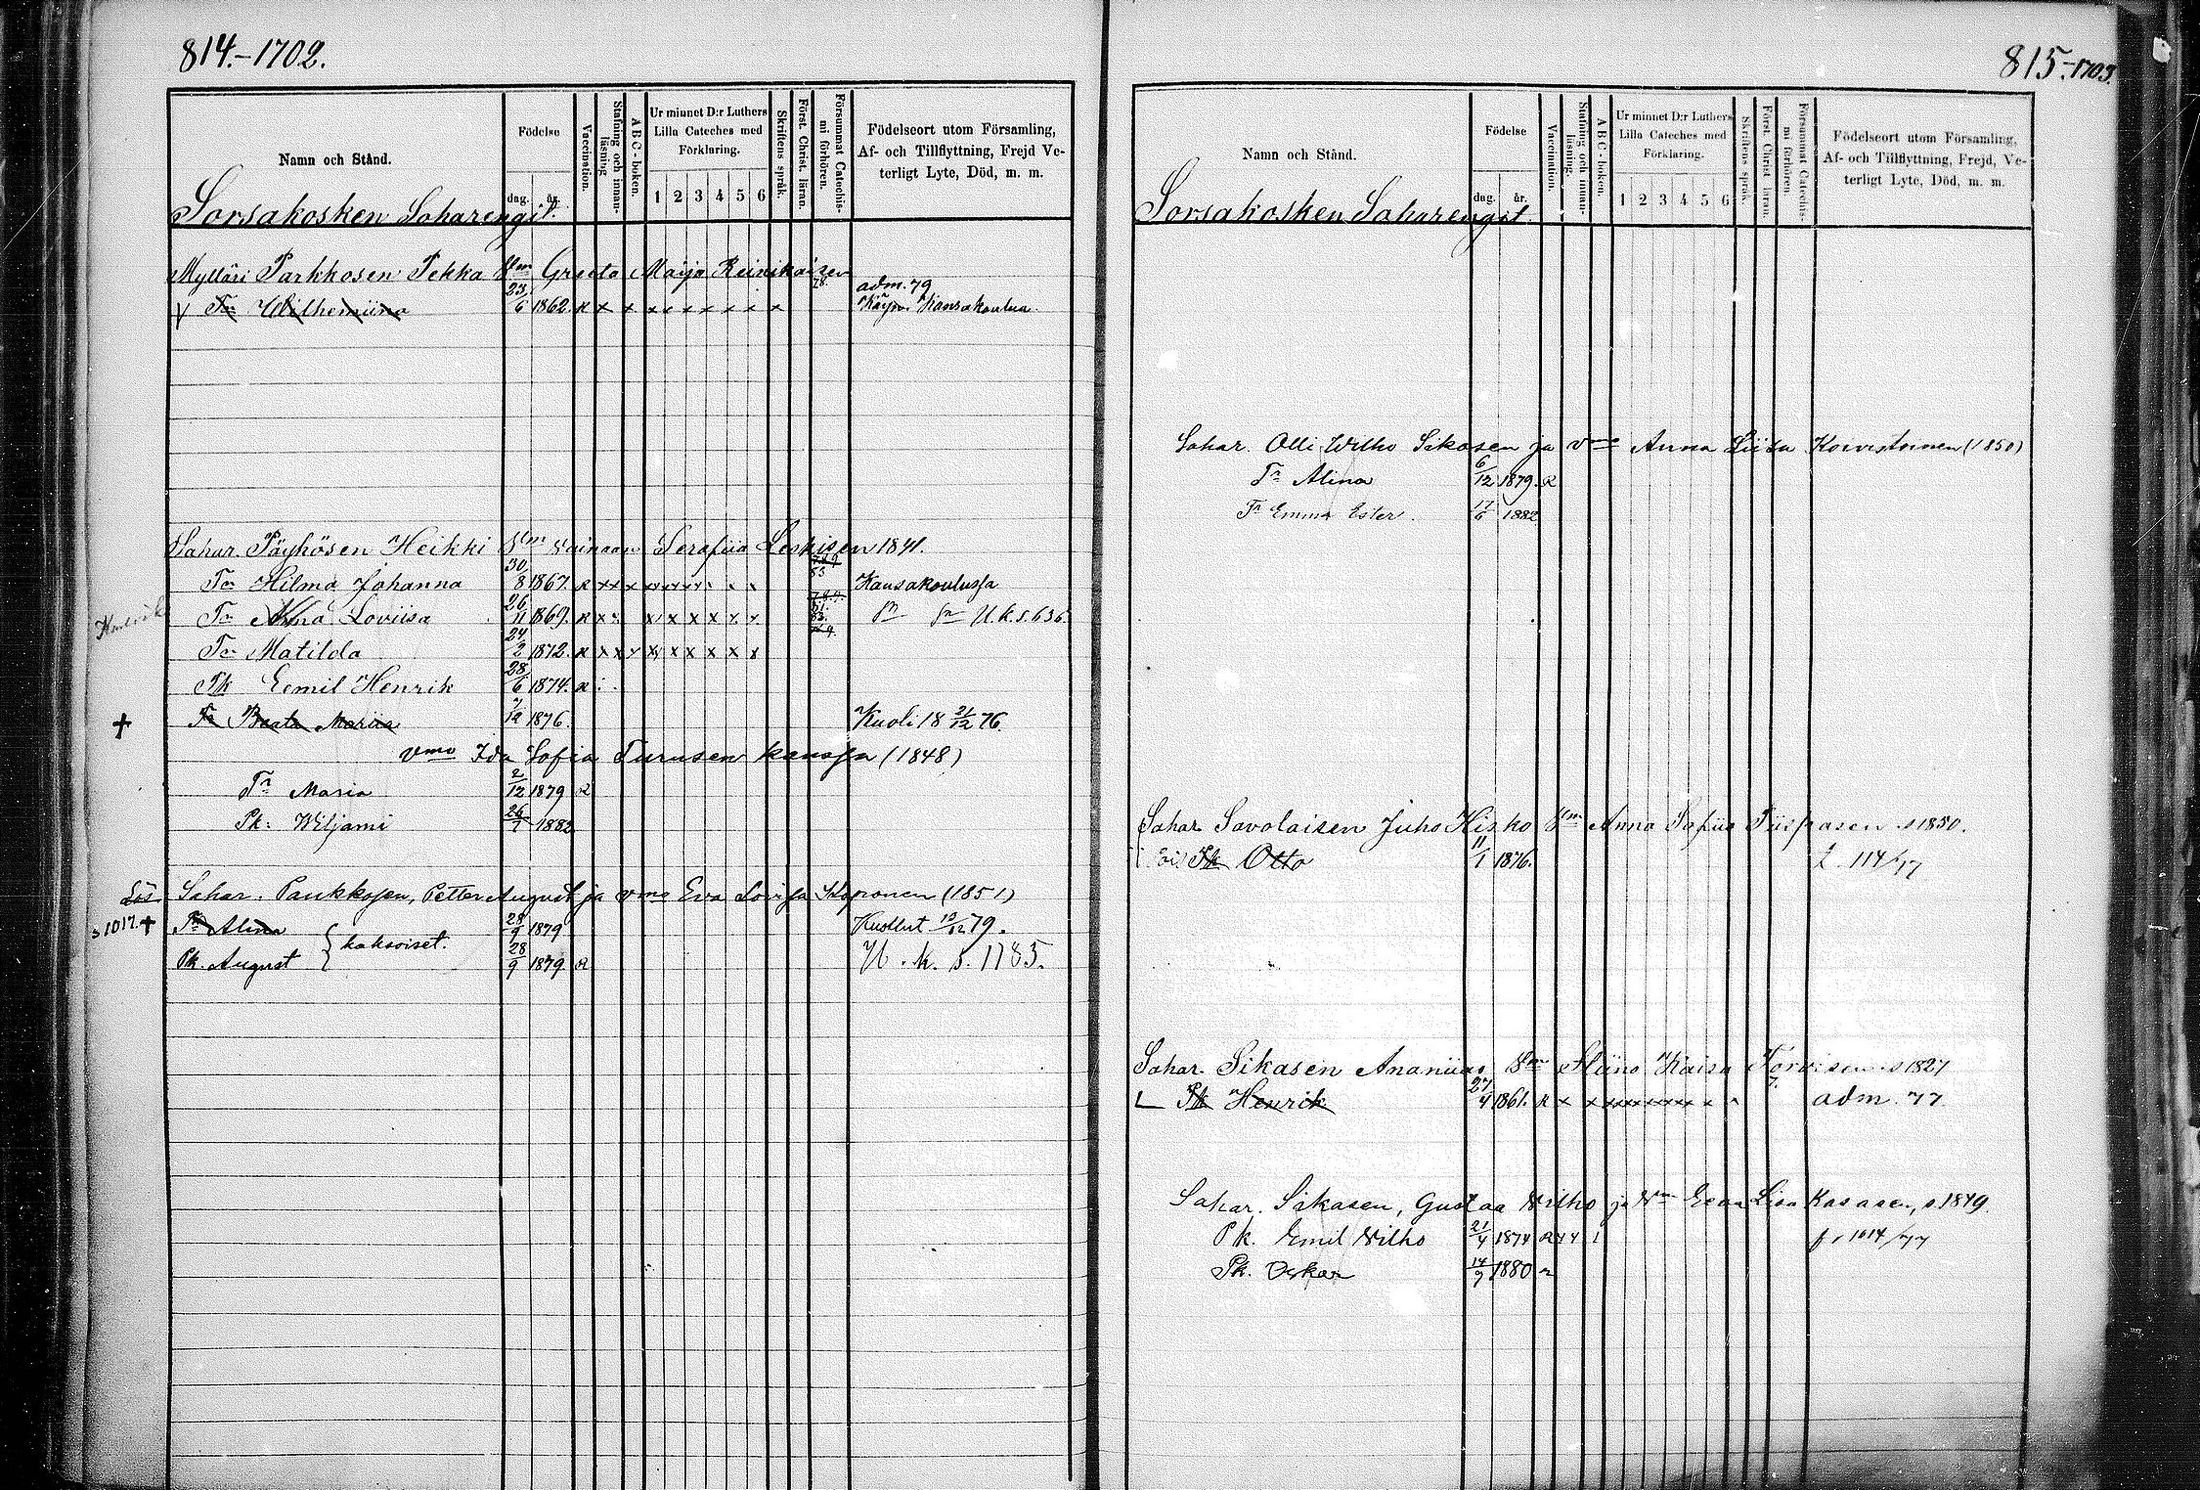 814.-1702.
Namn och Stånd.
Födelse
dag. år.
Vaccination.
Stafning och innan-läsning
ABC-boken.
Ur minnet D:r Luthers
Lilla Cateches med
Förklaring.
1 2 3 4 5 6
Skriftens språk.
Först. Christ. läran.
Försummat Catechis-mi förhören.
Födelseort utom Församling,
Af- och Tillflyttning, Frejd Ve-
terligt Lyte, Död, m. m.
Sorsakosken Saharengit.
Mylläri Parkkosen Pekka Vm Greeta Maija Reinikaisen
Tr Wilhemiina 23/6 1862. R x x x x x x x x x 78. adm. 79
Käyn. Kansakoulua.
Sahar. Pöyhösen Heikki Vm vainaan Serafiia Leskisen 1841.
Tr Hilma Johanna 30/8 1867. R x x x Kansakoulussa
Tr Alma Loviisa 26/11 1869. R x x x x x x U.k.s. 636.
Tr Matilda 24/2 1872. R x x x x x x x x x
Pk Eemil Henrik 28/6 1874. R
+ Tr Beata Mariia 7/12 1876. Kuoli 18 21/12 76.
vmo Ida Sofia Turusen kanssa (1848)
Tr Maria 2/12 1879 R
Pk. Wiljami 26/1 1882
Sahar. Paukkosen, Petter August ja vmo Eva Lovisa (1851)
s 1017. + Tr Alina 28/9 1879 Kuollut 19/12 79.
kaksoiset.
Pk. August 28/9 1879 R U. k. s. 1185.
815.-1703.
Namn och Stånd.
Födelse
dag. år.
Vaccination.
Stafning och innan-läsning.
ABC-boken.
Ur minnet D:r Luthers
Lilla Cateches med
Förklaring.
1 2 3 4 5 6
Skriftens språk.
Först. Christ läran.
Försummat Catechis-mi förhören.
Födelseort utom Församling,
Af- och Tillflyttning, Frejd, Ve-
terligt Lyte, Död, m. m.
Sorsakosken Saharengit.
Sahar. Olli Wilho Sikasen ja vmo Anna Liisa Koivistoinen (1850)
Tr Alina 6/12 1879. R
Tr Emma Ester. 17/6 1882
Sahar. Savolaisen Juho Hisko Vm Anna Sofiia Piispasen s 1850.
Pk Otto 11/1 1876. 2. 114/77
Sahar. Sikasen Ananias Vm Kaisa Torvisen s 1827
Pk Henrik 27/4 1861. R x x x x x x x x adm. 77
Sahar. Sikasen, Gustaa Wilho ja Vm Eeva Lisa Kasasen, s. 1849.
Pk. Emil Wilho 21/4 1874 R f. 1614/77
Pk. Oskar 14/9 1880